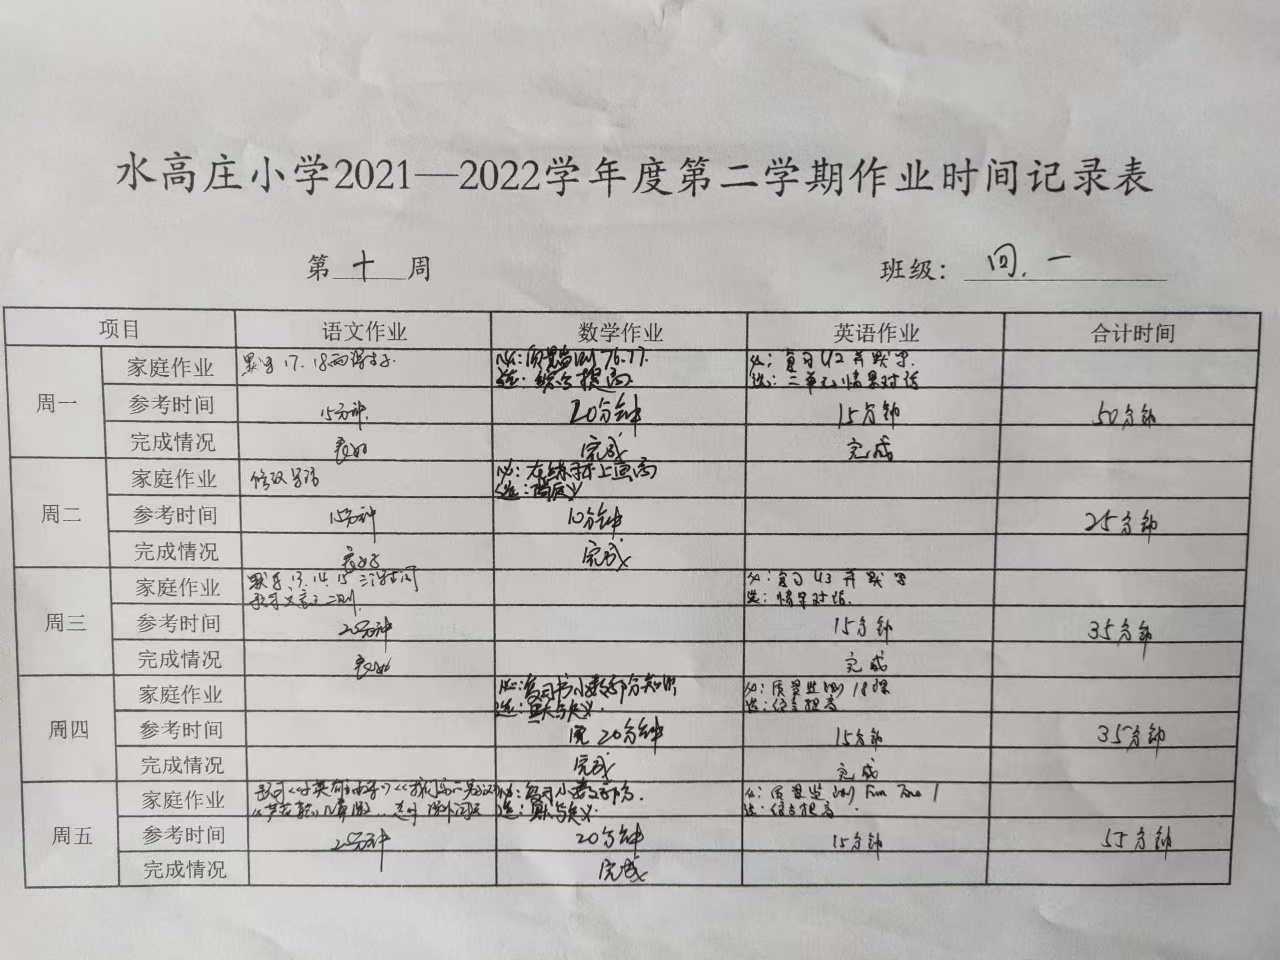 水高庄小学2021—2022学年度第二学期作业时间记录表
第 十 周 班级: 四.一
项目 语文作业 数学作业 英语作业 合计时间
周一
家庭作业 默写17、18 必:质量监测76.77. 必:复习U2并默写.
选:综合提高 选:二单元情景对话
参考时间 15分钟. 20分钟 15分钟 50分钟
完成情况 良好 完成 完成
周二
家庭作业 修改习作 必:在练习本上画高
选:
参考时间 15分钟 10分钟 25分钟
完成情况 良好 完成
周三
家庭作业 默写13.14.15 必:复习U3并默写
二则. 选:情景对话.
参考时间 20分钟 15分钟 35分钟
完成情况 良好 完成
周四
家庭作业 必:复习书小数部分知识 必:质量监测18课
选: 选:综合提高
参考时间 20分钟 15分钟 35分钟
完成情况 完成 完成
周五
家庭作业 必:复习小数部分. 必:质量监测Fun Time 1
选: 选:综合提高
参考时间 25分钟 20分钟 15分钟 55分钟
完成情况 完成